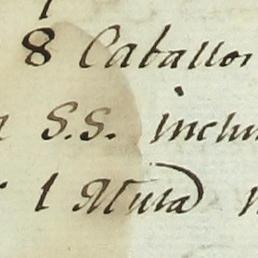 8 Caballos
S.S. inclu
1 Mula